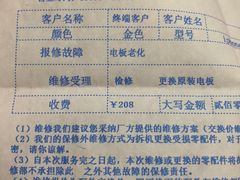 客户名称 终端客户 客户姓名
颜色 金色 型号
报修故障 电板老化
维修受理 检修 更换原装电板
收费 ￥208 大写金额 贰佰零
(1) 维修我们建议您采纳厂方提供的维修方案(交换价格
(2) 我们的保外维修方式为拆机更换受损零配件，对于
密，请你谅解。
(3) 自本次服务完之日起，本次维修或更换的零配件将
修部不承担除此 之外其他故障的保修责任。